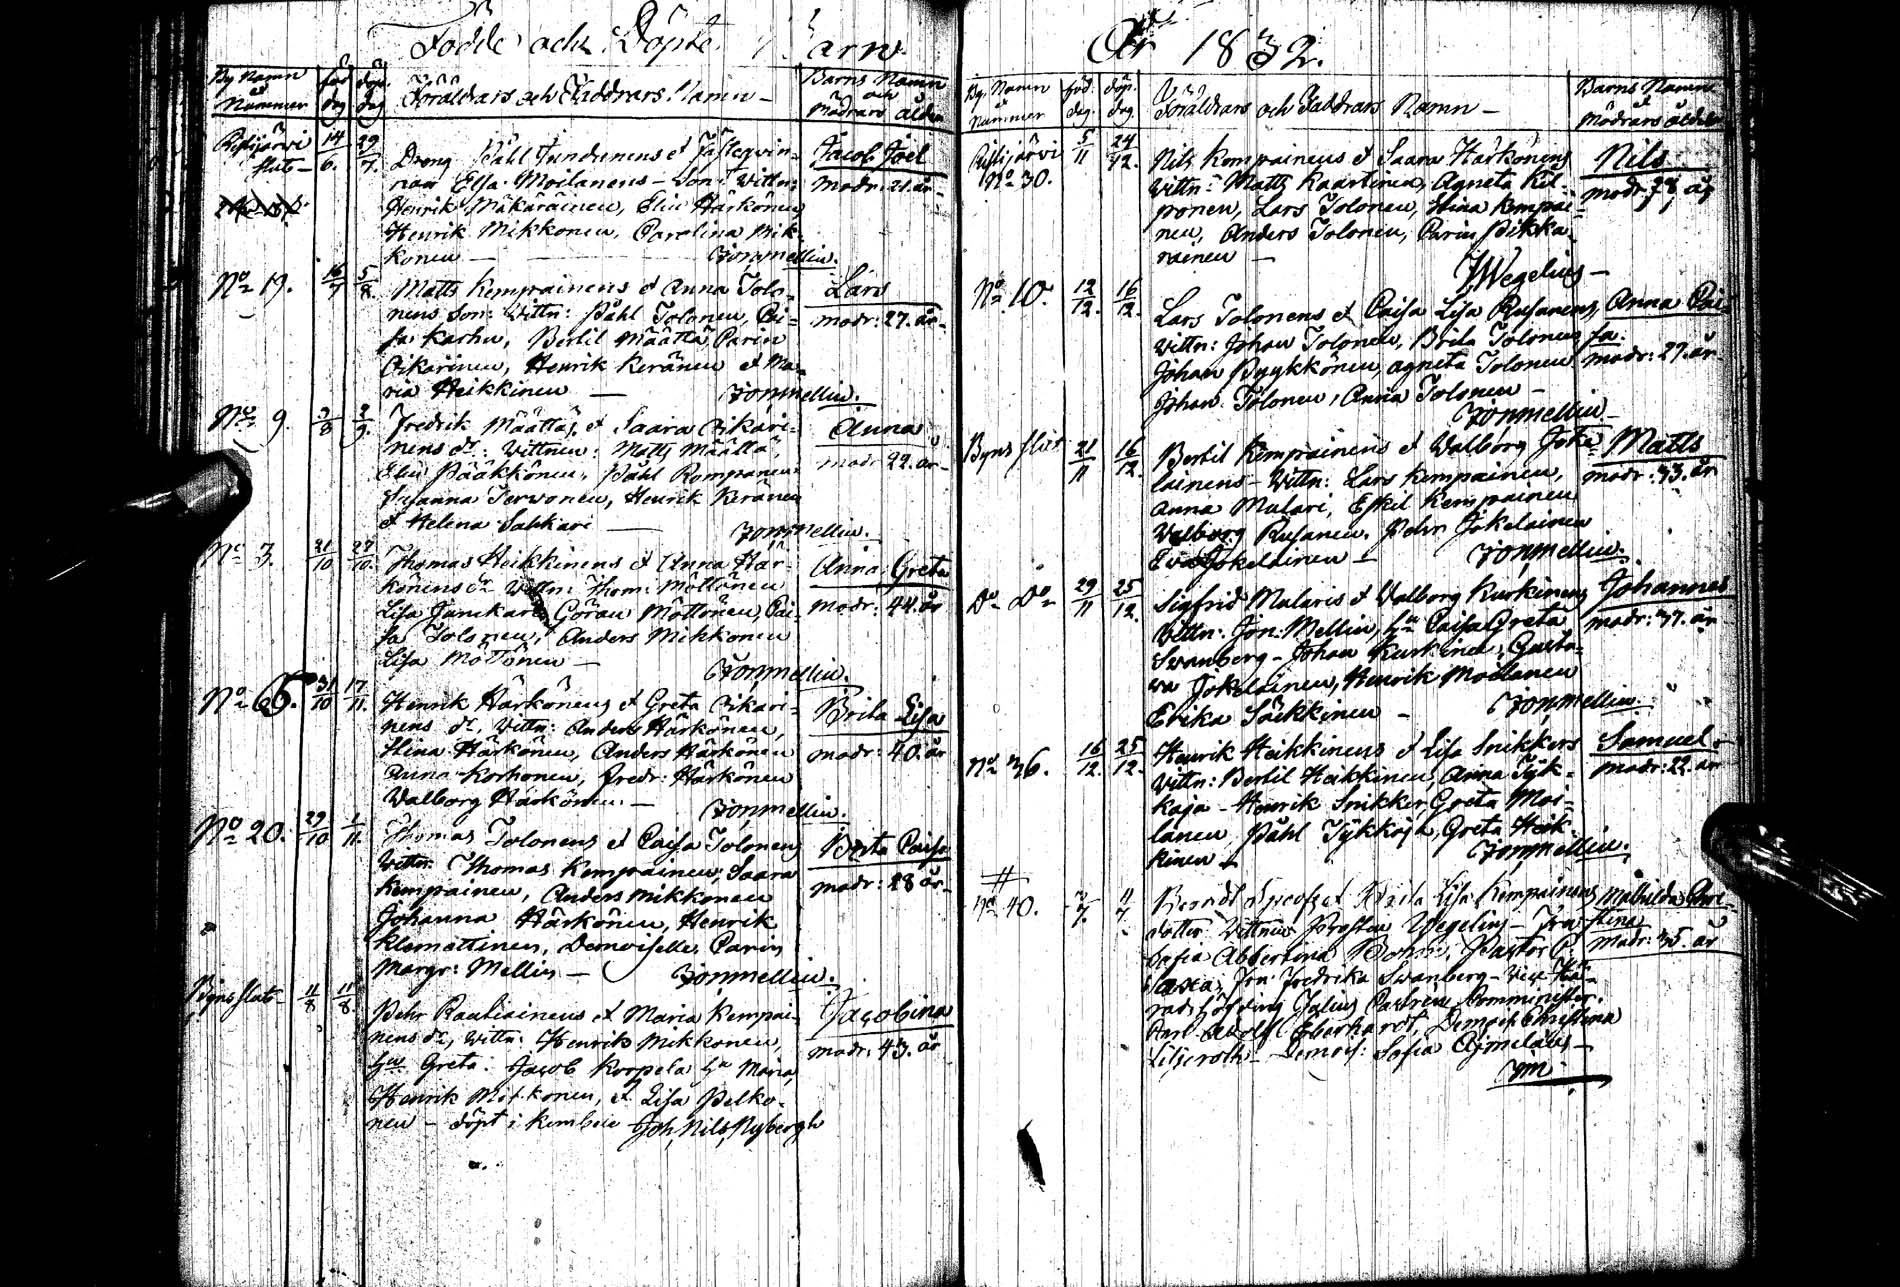 Födde och Döpte Barn
By Namn
och
Nummer
föd.
dag
döp.
dag
Föräldrars och Faddrars Namn –
Barns Namn
och
Mödrars ålder
Ristijärvi
14/6. 29/7.
Dreng Påhl
Elsa Moilanens – Son: Wittn:
Henrik Mäkäräinen, Elin Härkönen
Henrik Mikkonen, Carolina Mik-
konen –
Jon Mellin.
Jacob Joel
modr: 21. år –
No 19. 16/7 5/8.
Matts Kemppainens et Anna Tolo-
nens Son: Wittn: Påhl Tolonen, Cai-
sa Karhu, Bertil Määttä, Carin
Oikarinen, Henrik Keränen et Ma-
ria Heikkinen –
Jon Mellin.
Lars
modr: 27. år –
No 9. 3/8 2/9.
Fredrik Määttäs et Saara Oikari-
nens dr: Wittnen: Matts Määttä,
Elin Pääkkönen, Påhl Komponen
Susanna Terwonen, Henrik Keränen
et Helena Sahkari –
Jon Mellin.
Anna
modr 22. år –
No 3. 21/10 27/10.
Thomas Heikkinens et Anna Här-
könens dr Wittn: Thom: Möttönen
Lisa Jänskari, Göran Möttönen, Cai-
sa Tolonen, Anders Mikkonen
Lisa Möttönen –
Jon Mellin.
Anna Greta
modr: 44. år
No 65. 31/10 17/11.
Henrik Härkönens et Greta Oikari-
nens dr, Wittn: Anders Härkönen,
Stina Härkönen, Anders Härkönen
Anna Korhonen, Fredr: Härkönen
Walborg Härkönen –
Jon Mellin.
Brita Lisa
modr: 40. år
No 20. 29/10 1/11.
Thomas Tolonens et Caisa Tolonens
Wittn: Thomas Kempainen, Saara
Kempainen, Anders Mikkonen
Johanna Härkönen, Henrik
Klemettinen, Demoiselle Carin
Margr: Mellin –
Jon Mellin.
Brita Caisa
modr: 28 år –
11/8 11/8.
Pehr Rautiainens et Maria Kempai-
nens dr, Wittn: Henrik Mikkonen,
hu Greta: Jacob Korpela hu Maria,
Henrik Mikkonen, et Lisa Pelko-
nen – döpt i kembele Joh, Nils, Nybergh
Jacobina
modr: 43. år
År 1832.
By. Namn
Nummer
föd.
dag.
döp.
dag.
Föräldrars och Faddrars Namn –
Barns Namn
et
Mödrars ålder
Ristijärvi
No 30.
5/11 24/12.
Nils Kempainens et Saara Härkönens
Wittn: Matts Kaartinen, Agneta Kil-
ponen, Lars Tolonen, Stina Kempai-
nen, Anders Tolonen, Carin Pikka-
rainen –
JWegelius –
Nils
modr: 38, år
No 10. 12/12. 16/12.
Lars Tolonens et Caisa Lisa Rusanens
Wittn: Johan Tolonen, Brita Tolonen
Johan Pyykkönen, Agneta Tolonen
Johan Tolonen, Anna Tolonen –
Jon Mellin –
Anna Cai-
sa:
modr: 27. år
21/11 16/12.
Bertil Kempainens et Walborg Joke-
lainens – Wittn: Lars Kempainen,
Anna Mulari, Eskil Kempainen
Walborg Rusanen, Pehr Jokelainen
Eva Jokelainen –
Jon Mellin.
Matts
modr: 33. år
Do Do 29/11 25/12.
Sigfrid Mularis et Walborg Kurkinens
Wittn: Jon: Mellin, hu Caisa Greta
Swanberg – Johan Kurkinen, Gusta-
va Jokelainen, Henrik Moilanen
Erika Säikkinen –
Jon Mellin.
Johannes
modr: 37. år
No 36. 16/12. 25/12.
Henrik Heikkinens et Lisa Snikkers
Wittn: Bertil Heikkinen, Anna Tyk-
käjä – Henrik Snikker, Greta Moi-
lanen Påhl Tykkäjä, Greta Heik-
kinen –
Jon Mellin.
Samuel –
modr: 22. år
No 40. 3/7. 11/7.
et Brita Lisa Kempainens
dotter Wittnen Prosten Wegelius – Fru
Sofia Albertina Bohm, Pastor C.
Saxa, Fru Fredrika Swanberg –
Julius Castren Comminister.
Carl Adolf Eberhardt, Demois Christina
Liljeroth – Demois: Sofia Ajmelæus –
JM
Mathilda Chri-
stina
Modr: 35. år